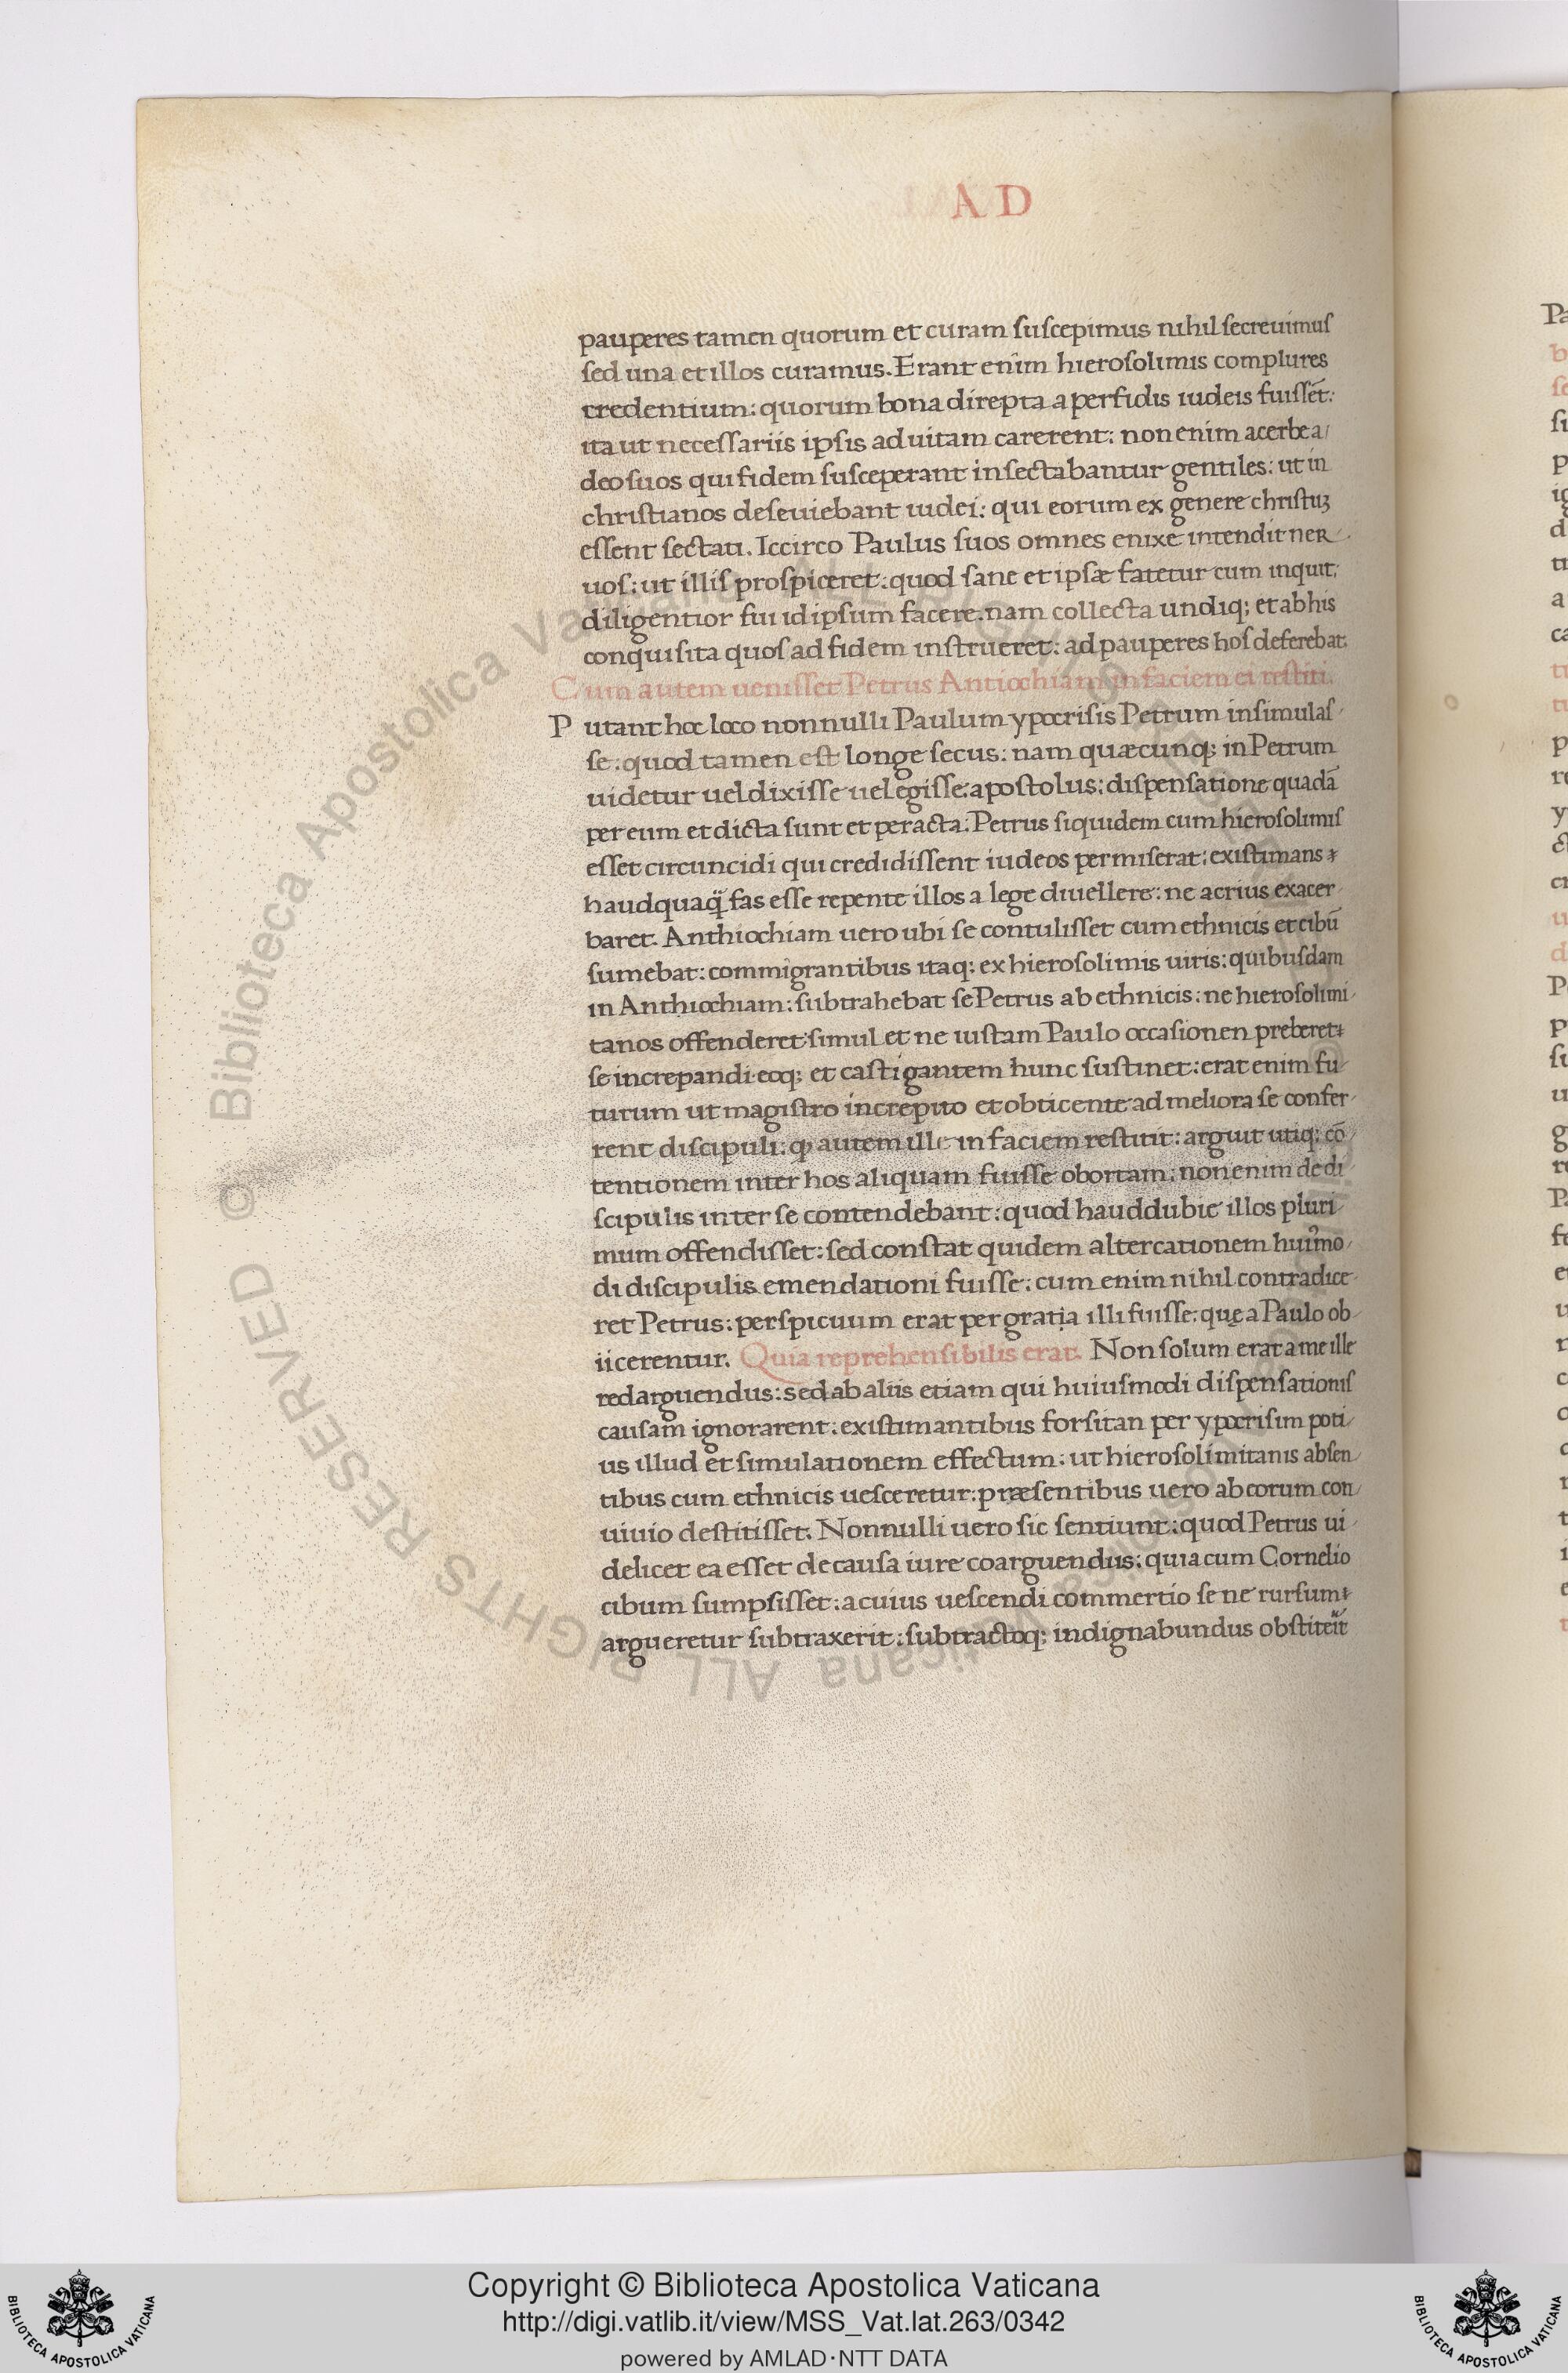 AD
pauperes tamen quorum et curam ſuſcepimus nihil ſecreuimuſ
ſed una et illos curamus. Erant enim hieroſolimis complures
credentium: quorum bona direpta a perfidis iudeis fuiſſēt:
ita ut neceſſariis ipſis ad uitam carerent: non enim acerbe a/
deo ſuos qui fidem ſuſceperant inſectabantur gentiles: ut in
chriſtianos deſeuiebant iudei: qui eorum ex genere chriſtuꝫ
eſſent ſectati. Iccirco Paulus ſuos omnes enixe intendit ner/
uoſ: ut illiſ proſpiceret: quod ſane et ipſæ fatetur cum inquit:
diligentior fui id ipſum facere. nam collecta undiq; et ab his
conquiſita quoſ ad fidem inſtrueret: ad pauperes hoſ deferebat.
Cum autem ueniſſet Petrus Antiochiam in faciem ei reſtiti.
Putant hoc loco nonnulli Paulum ypocriſis Petrum inſimulaſ/
ſe: quod tamen eſt longe ſecus: nam quæcunq; in Petrum
uidetur uel dixiſſe uel egiſſe apoſtolus: diſpenſatione quadā
per eum et dicta ſunt et peracta: Petrus ſiquidem cum hieroſolimiſ
eſſet circuncidi qui credidiſſent iudeos permiſerat: exiſtimans
haudquaq̈ fas eſſe repente illos a lege diuellere: ne acrius exacer/
baret. Anthiochiam uero ubi ſe contuliſſet cum ethnicis et cibū
ſumebat: commigrantibus itaq; ex hieroſolimis uiris: quibuſdam
in Anthiochiam: ſubtrahebat ſe Petrus ab ethnicis: ne hieroſolimi/
tanos offenderet ſimul et ne iuſtam Paulo occaſionen preberet
ſe increpandi eoq; et caſtigantem hunc ſuſtinet: erat enim fu/
turum ut magiſtro increpito et obticente ad meliora ſe confer/
rent diſcipuli: ꝙ autem ille in faciem reſtitit: arguit utiq; cō/
tentionem inter hos aliquam fuiſſe obortam: non enim de di/
ſcipulis inter ſe contendebant: quod haud dubie illos pluri/
mum offendiſſet: ſed conſtat quidem altercationem huiꝰmo/
di diſcipulis emendationi fuiſſe: cum enim nihil contradice/
ret Petrus: perſpicuum erat pergratia illi fuiſſe: quę a Paulo ob/
iicerentur. Quia reprehenſibilis erat. Non ſolum erat a me ille
redarguendus: sed ab aliis etiam qui huiuſmodi diſpenſationiſ
cauſam ignorarent: exiſtimantibus forſitan per ypocriſim poti/
us illud et ſimulationem effectum: ut hieroſolimitanis abſen/
tibus cum ethnicis ueſceretur: præſentibus uero ab eorum con/
uiuio deſtitiſſet. Nonnulli uero ſic ſentiunt: quod Petrus ui/
delicet ea eſſet de cauſa iure coarguendus: quia cum Cornelio
cibum ſumpſiſſet: a cuius ueſcendi commertio ſe ne rurſum
argueretur ſubtraxerit: ſubtractoq; indignabundus
© Biblioteca Apostolica Vaticana ALL RIGHTS RESERVED
Copyright © Biblioteca Apostolica Vaticana
http://digi.vatlib.it/view/MSS_Vat.lat.263/0342
powered by AMLAD·NTT DATA
BIBLIOTECA APOSTOLICA VATICANA
BIBLIOTECA APOSTOLICA VATICANA